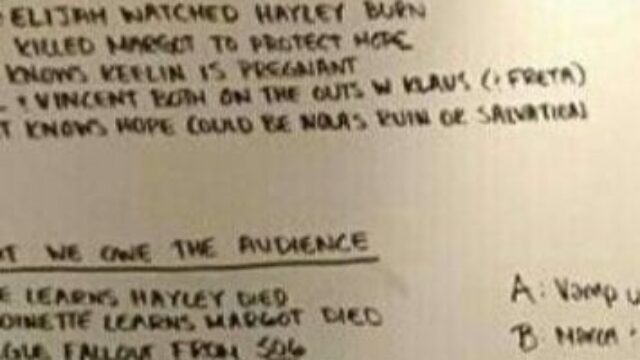 ELIJAH WATCHED HAYLEY BURN
KILLED MARGOT TO PROTECT HOPE
KNOWS KEELIN IS PREGNANT
+ VINCENT BOTH ON THE OUTS W KLAUS (+ FREYA)
T KNOWS HOPE COULD BE NOLAS RUIN OR SALVATION
T WE OWE THE AUDIENCE
E LEARNS HAYLEY DIED
OINETTE LEARNS MARGOT DIED
GUE FALLOUT FROM 506
A: Vamp
B: MARCH